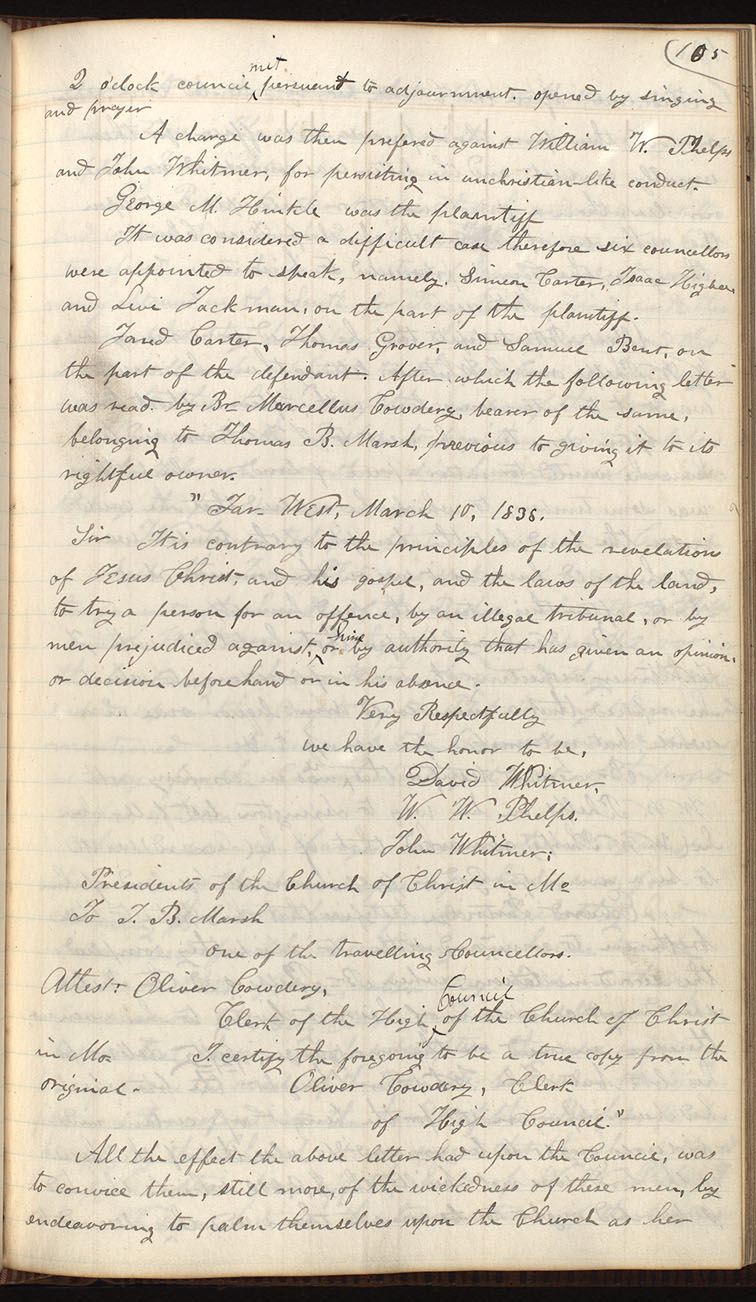 105
2 o'clock council met persuent to adjournment. opened by singing
and prayer
A charge was then prefered against William W. Phelps
and John Whitmer, for persisting in unchristian-like conduct.
George M. Hinkle was the plaintiff
It was considered a difficult case therefore six councellors
were appointed to speak, namely. Simeon Carter, Isaac Higbee
and Levi Jackman, on the part of the plaintiff.
Jared Carter, Thomas Grover, and Samuel Bent, on
the part of the defendant. After which the following letter
was read. by Br Marcellus Cowdery, bearer of the same,
belonging to Thomas B. Marsh, previous to giving it to its
rightful owner.
"Far-West, March 10, 1838.
Sir It is contrary to the principles of the revelations
of Jesus Christ, and his gospel, and the laws of the land,
to try a person for an offence, by an illegal tribunal, or by
men prejudiced against, him or by authority that has given an opinion,
or decision beforehand or in his absence.
Very Respectfully
we have the honor to be,
David Whitmer,
W. W. Phelps.
John Whitmer;
Presidents of the Church of Christ in Mo
To T. B. Marsh
one of the travelling Councellors.
Attest: Oliver Cowdery,
Clerk of the High Council of the Church of Christ
in Mo= I certify the foregoing to be a true copy from the
original- Oliver Cowdery, Clerk
of High Council."
All the effect the above letter had upon the Council, was
to convice them, still more, of the wickedness of these men, by
endeavoring to palm themselves upon the Church as her